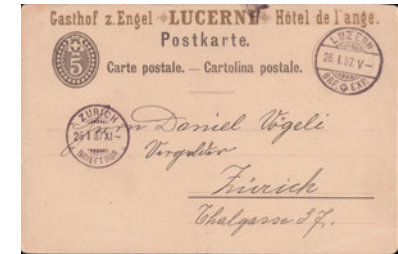 Gasthof z. Engel LUCERNE Hôtel de l'ange.
Postkarte.
5
Carte postale. — Cartolina postale.
LUZERN
26.I.87.V–
BRF. EXP.
ZÜRICH
Daniel Vögeli
Vergolder
Zürich
Thalgasse 37.